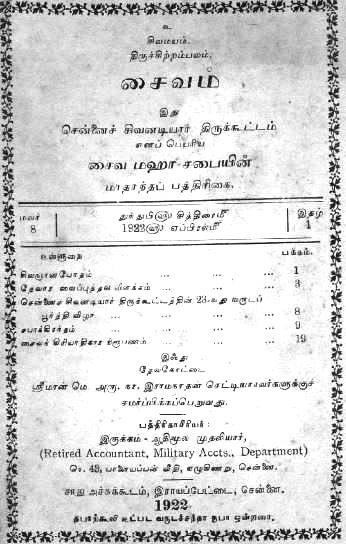 உ
சிவமயம்.
திருச்சிற்றம்பலம்.
சைவம்
இது
சென்னைச் சிவனடியார் திருக்கூட்டம்
எனப் பெயரிய
சைவ மஹா சபையின்
மாதாந்தப் பத்திரிகை.
மலர் 8
துந்துபி௵ சித்திரை௴
1922௵ ஏப்ரல்௴
இதழ் 1
உள்ளுறை பக்கம்.
சிவஞானபோதம் ... ... ... 1
தேவார வைப்புத்தல விளக்கம் ... ... 3
சென்னை சிவனடியார் திருக்கூட்டத்தின் 23-வது வருடப்
பூர்த்தி விழா ... ... ... 8
சபாக்கிரத்தம் ... ... ... 9
சைலக் கிரியாதிகார நிரூபணம் ... ... 19
இஃது
தேவகோட்டை
ஸ்ரீமான் மெ. அரு. நா. இராமநாதன் செட்டியாரவர்களுக்குச்
சமர்ப்பிக்கப்பெறுவது.
பத்திரிகாசிரியர் :
இருக்கம் - ஆதிமூல முதலியார்,
(Retired Accountant, Military Accts., Department)
நெ. 43, பாளையப்பன் வீதி, ஏழுகிணறு, சென்னை.
சாது அச்சுக்கூடம், இராயப்பேட்டை, சென்னை.
1922
தபாற்கூலி உட்பட வருடச்சந்தா ரூபா ஒன்றரை.